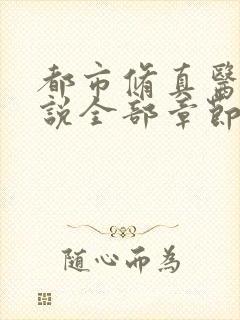 都市脩真醫
說全部章節
隨心而為